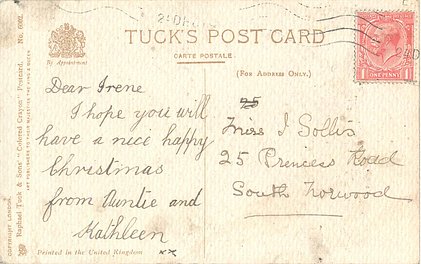 TUCK'S POST CARD
CARTE POSTALE.
By Appointment
(FOR ADDRESS ONLY.)
Dear Irene
I hope you will
have a nice happy
Christmas
from Auntie and
Kathleen
xx
25
Miss I Sollis
25 Princess Road
South Norwood
Printed in the United Kingdom
COPYRIGHT LONDON.
Raphael Tuck & Sons' "Colored Crayon" Postcard. No.
ART PUBLISHERS TO THEIR MAJESTIES THE KING & QUEEN
1 ONE PENNY 1